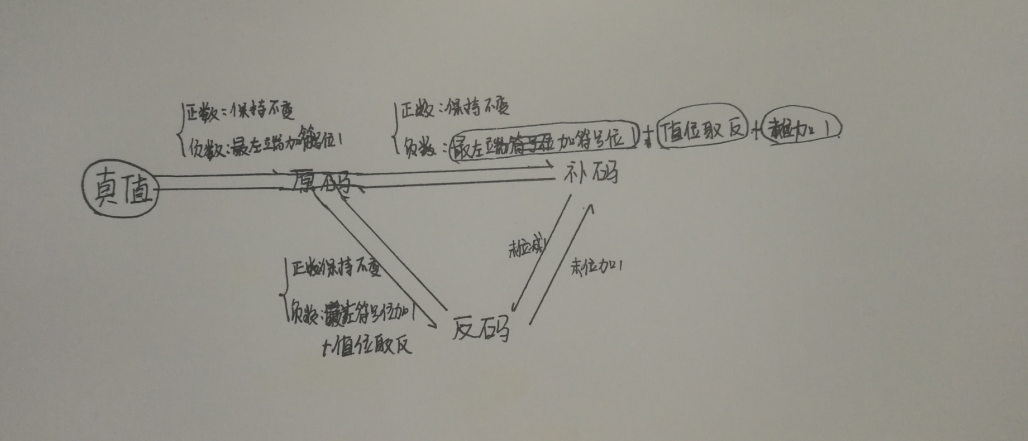 正数:保持不变
负数:最左端加符号位1
正数:保持不变
负数:最左端加符号位1+值位取反+末位加1
真值
原码
补码
末位减1
末位加1
正数保持不变
负数:最左符号位加1
+值位取反
反码